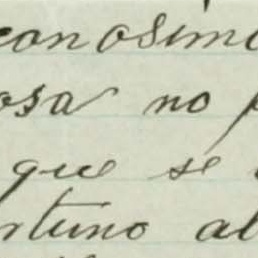 conosim
osa no p
que se
rtuno al